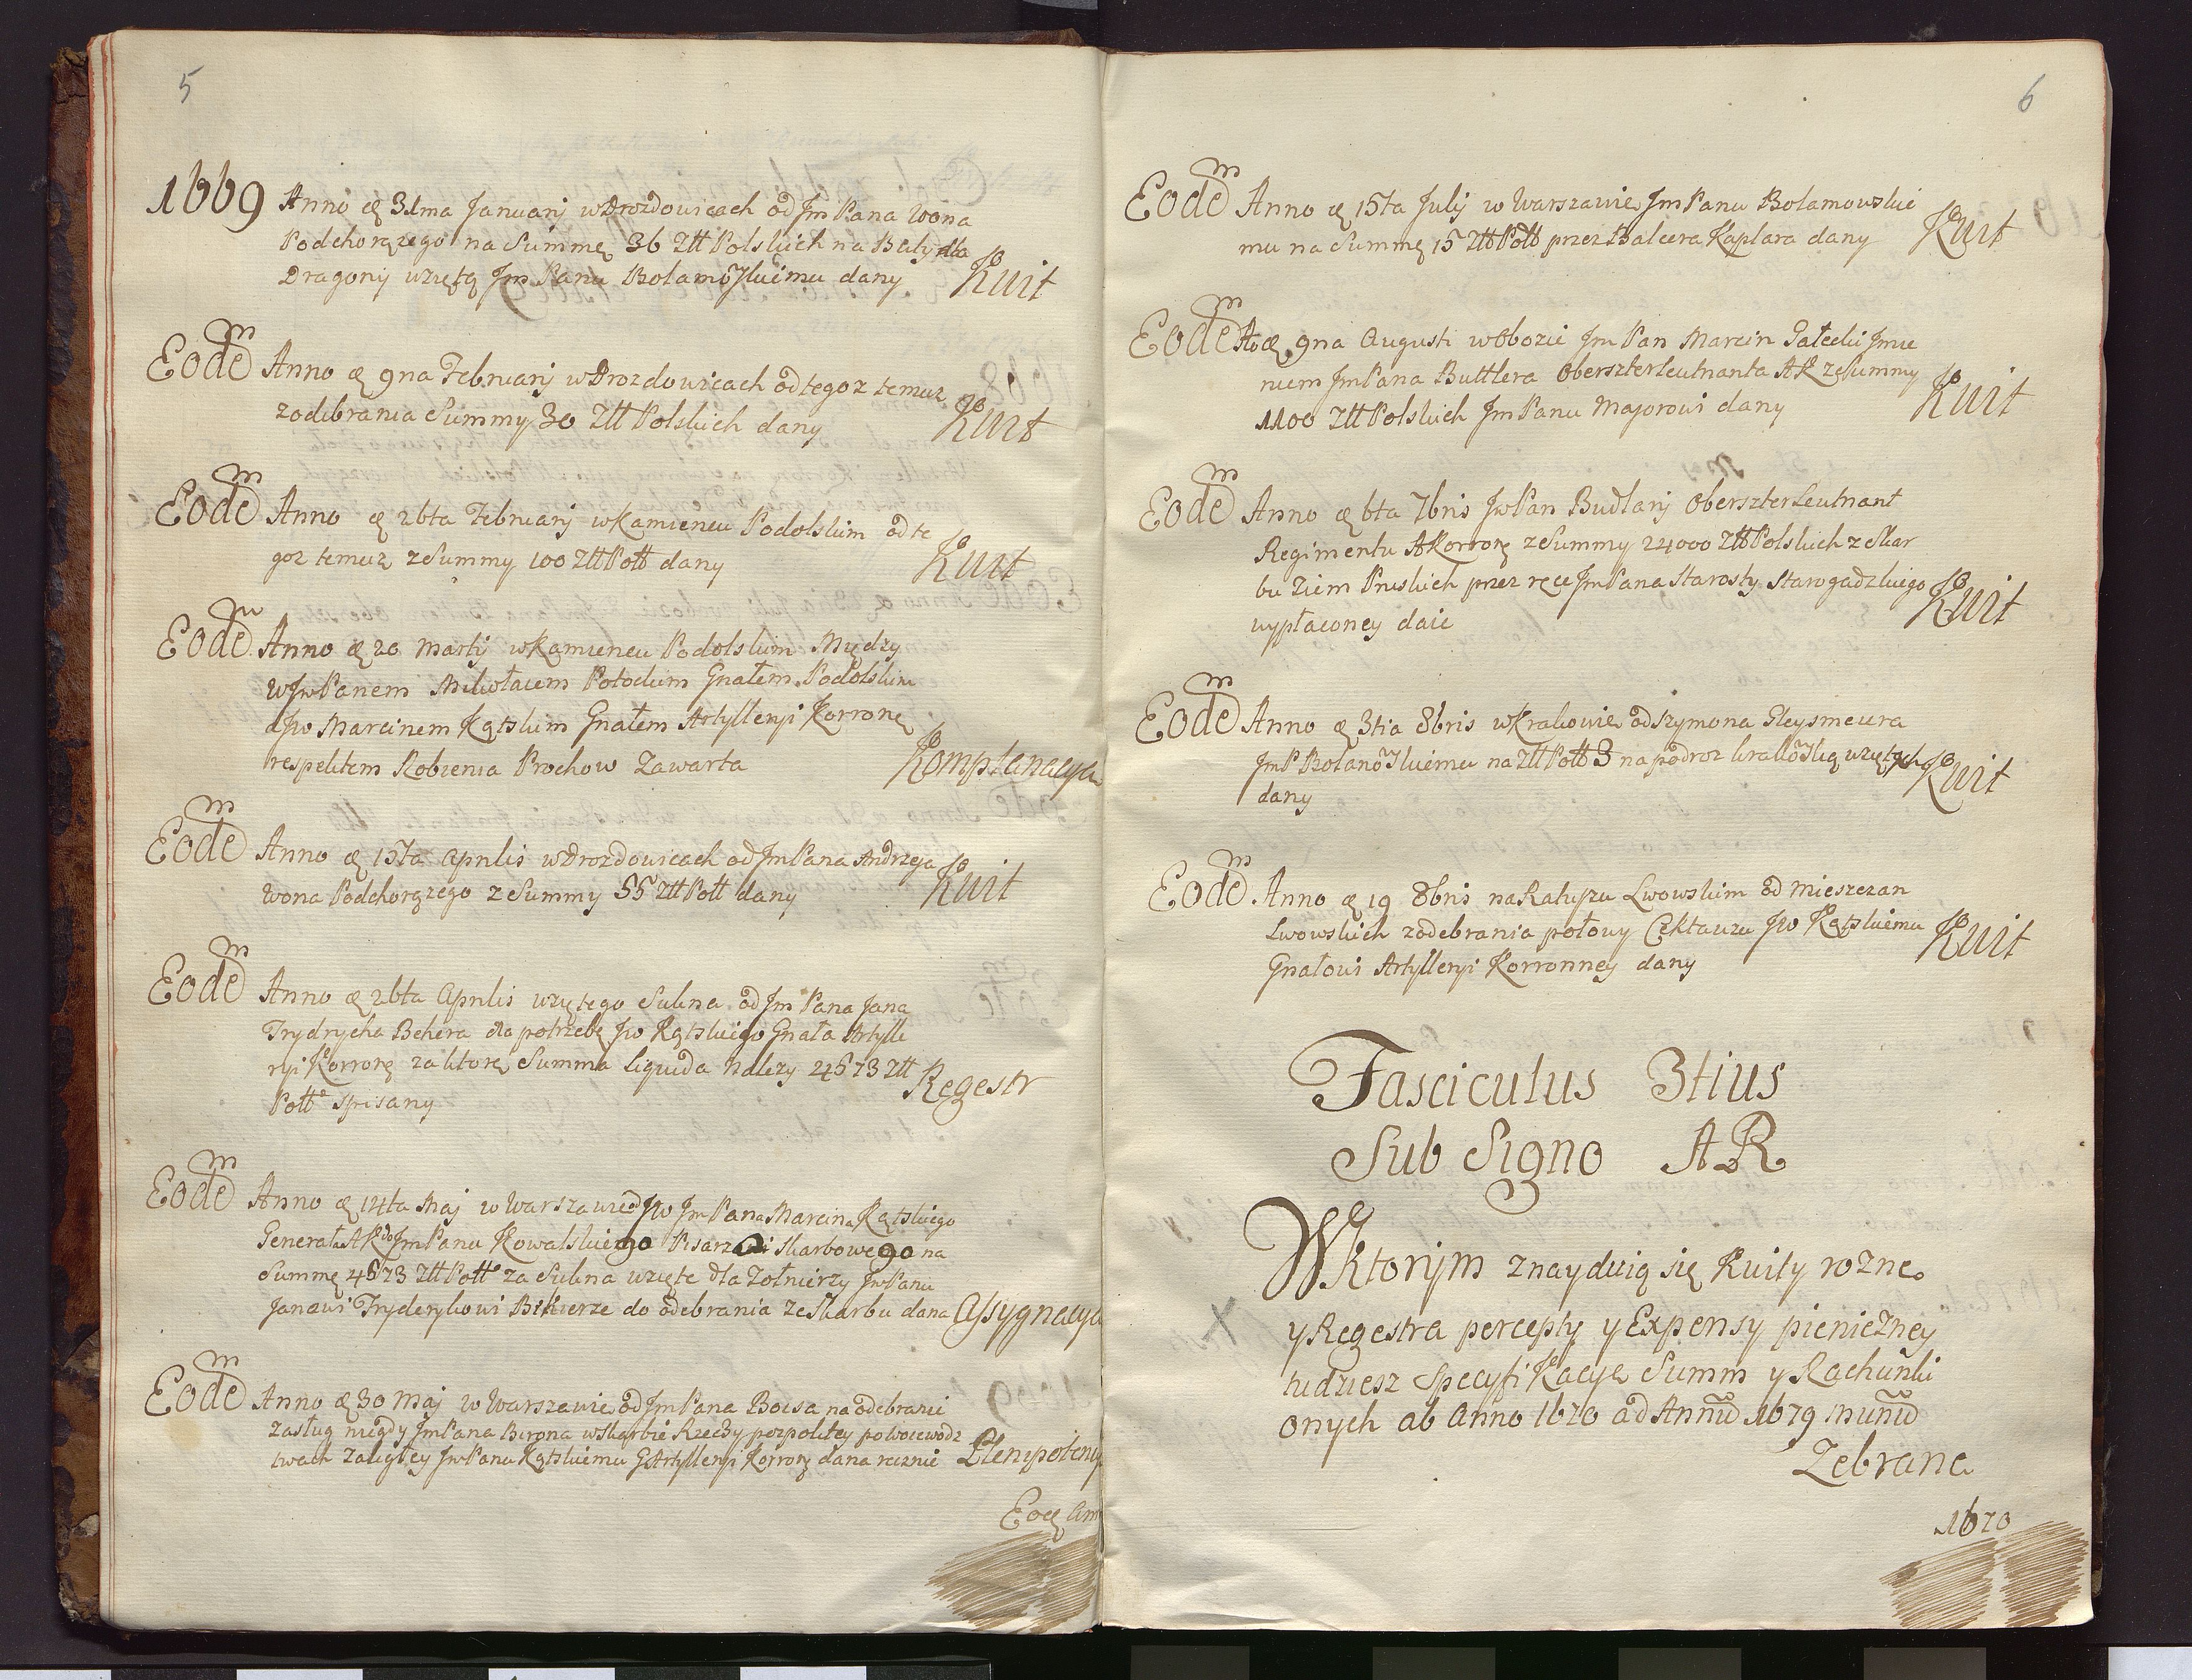 5
1669 Anno æ 31ma Januarij w Drozdowicach od Jm Pana Wona
Podchorązego na Summę 36 Ztt Polskich na Buty dla
Dragonij wziętą Jm Panu Bolamowskiemu dany Kwit
Eodem Anno æ 9na Februarij w Drozdowicach od tegoz temuz
z odebrania Summy 30 Ztt Polskich dany Kwit
Eodem Anno æ 26ta Februarij w Kamiencu Podolskim od te
goz temuz z Summy 100 Ztt Pott dany Kwit
Eodem Anno æ 20 Martij w Kamiencu Podolskim Między
WJw Panem Mikołaiem Potockim Gnałem Podolskim
a Jw Marcinem Kątskim Gnałem Artylleryi Korronę
respektem Robienia Prochow Zawarta Komplanacya
Eodem Anno æ 15ta Aprilis w Drozdowicach od Jm Pana Andrzeja
Wona Podchorązego z Summy 55 Ztt Pott dany Kwit
Eodem Anno æ 26ta Aprilis wziętego Sukna od Jm Pana Jana
Frydrycha Bekera dla potrzeby Jw Kątskiego Gnała Artylle
ryi Korronę za ktorę Summa liquida Należy 4573 Ztt
Pott spisany Regestr
Eodem Anno æ 14ta Maj w Warszawie od Jw Jm Pana Marcina Kątskiego
Generała AK do Jm Panu Kowalskiego Pisarza Skarbowego na
Summę 4573 Ztt Pott za Sukna wzięte dla Zołnierzy Jw Panu
Janowi Fryderykowi Bikierze do odebrania ze Skarbu dana Assygnacya
Eodem Anno æ 30 Maj w Warszawie od Jm Pana Boesa na odebranie
zasług niegdy Jm Pana Birona w Skarbie Rzeczy pospolitey po Woiewodz
twach Zaległey Jw Panu Kątskiemu G Artylleryi Korronę dana recznie Plenipotency
Eoę Ann
6
Eodem Anno æ 15ta Julij w Warszawie Jm Panu Bolamowskie
mu na Summę 15 Ztt Pott przez Balcera Kaplara dany Kwit
Eodem Ao æ 9na Augusti w Obozie Jm Pan Marcin Gałecki Jmie
niem Jm Pana Buttlera Oberszterleutnanta AK z Summy
1100 Ztt Polskich Jm Panu Majorowi dany Kwit
Eodem Anno æ 6ta 7bris Jw Pan Budlarij Oberszter Leutnant
Regimentu A Korronę z Summy 24000 Ztt Polskich z Skar
bu Ziem Pruskich przez ręce Jm Pana Starosty Starogadzkiego
wypłaconey daie Kwit
Eodem Anno æ 3tia 8bris w Krakowie od Szymona Gleysmeura
Jm P Bolanowskiemu na Ztt Pott 3 na podroz krakowską wziętych
dany Kwit
Eodem Anno æ 19 8bris na Ratuszu Lwowskim od Mieszczan
Lwowskich z odebrania połowy Cektauzu Jw Kątskiemu
Gnałowi Artylleryi Korronney dany Kwit
Fasciculus 3tius
Sub Signo AR
W Ktorym znayduią się Kwity rozne
y Regestra percepty y Expensy pieniężney
tudziesz Specyfikacye Summ y Rachunki
onych ab Anno 1670 ad Annũ 1679 munũ
Zebrane
1670